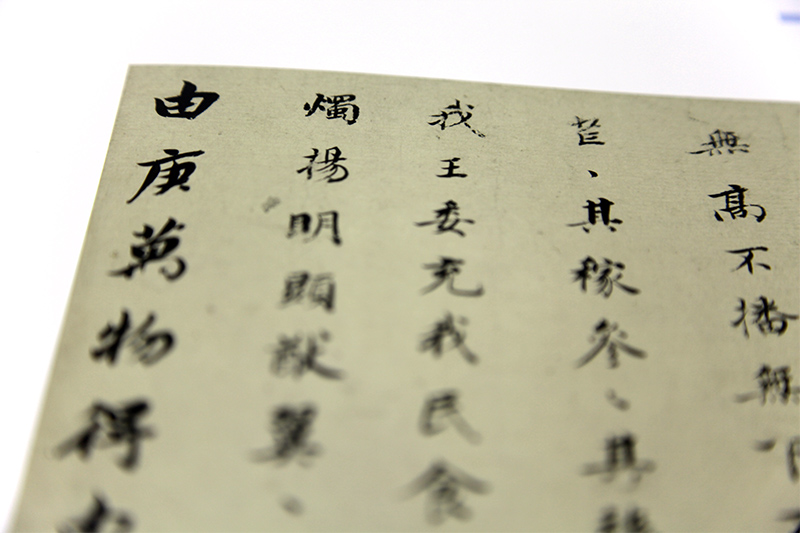 無高不播無
芒、其稼參、其
我王委充我民食
燭揚明顯猷翼、
由庚萬物得